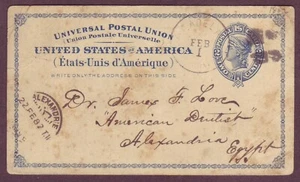 UNIVERSAL POSTAL UNION
Union Postale Universelle
UNITED STATES OF AMERICA
(États-Unis d'Amérique)
WRITE ONLY THE ADDRESS ON THIS SIDE
FEB
1
ALEXANDRIE
22 FEB
Dr. James F. Love
"American Dentist"
Alexandria
Egypt